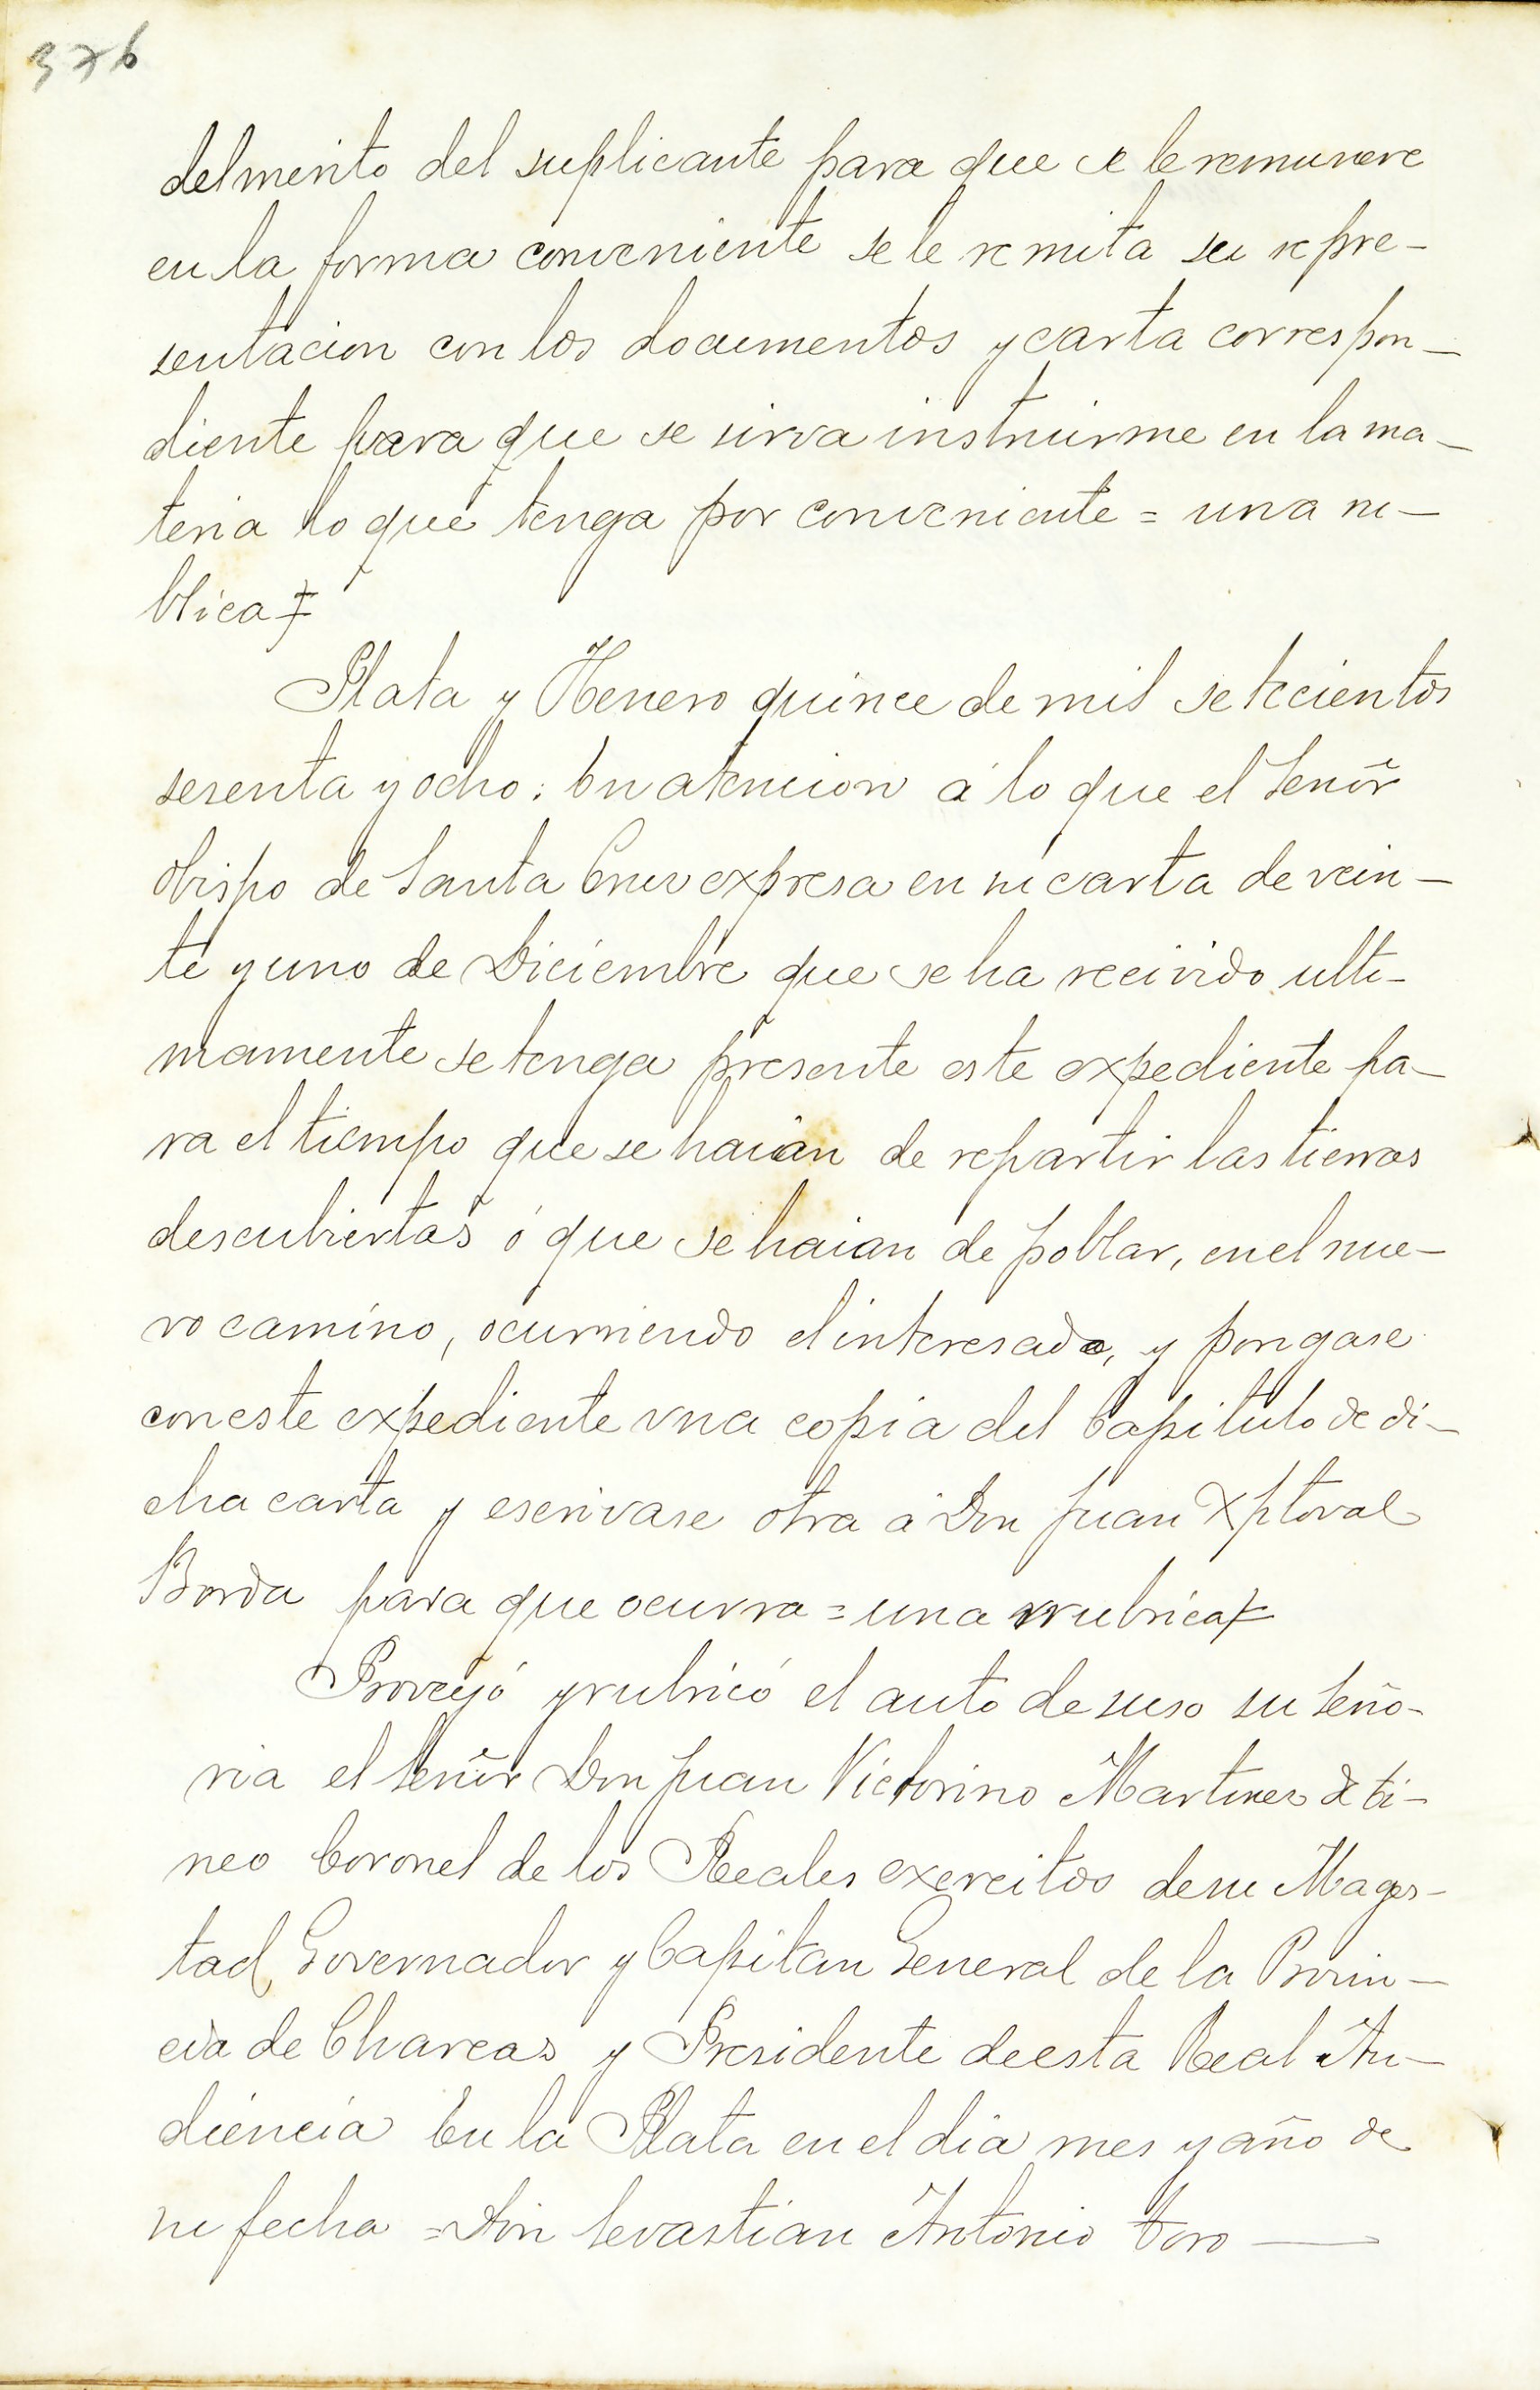 376
del merito del suplicante para que se le remunere
en la forma conveniente se le remita su repre-
sentacion con los documentos y carta correspon-
diente para que se sirva instruirme en la ma-
teria lo que tenga por conveniente = una ru-
blica =
Plata y Henero quince de mil setecientos
sesenta y ocho: En atencion á lo que el Señór
obispo de Santa Cruz expresa en su carta de vein-
te y uno de Diciembre que se ha recivido ulti-
mamente se tenga presente este expediente pa-
ra el tiempo que se haian de repartir las tierras
descubiertas ó que se haian de poblar, en el nue-
vo camino, ocurriendo el interesado, y pongase
con este expediente vna copia del Capitulo de di-
cha carta y escrivase otra á Don Juan Xptoval
Borda para que ocurra = una rrubrica =
Proveyó y rubricó el auto de suso su Seño-
ria el Señór Don Juan Victorino Martinez de ti-
neo Coronel de los Reales exercitos de su Mages-
tad, Governador y Capitan General de la Provin-
cia de Charcas y Presidente de esta Real Au-
diencia En la Plata en el dia mes y año de
su fecha = Don Sevastian Antonio toro